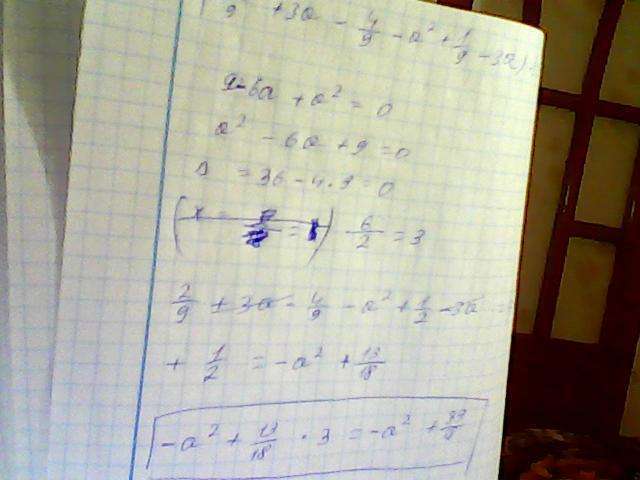 9 + 3a - 4/9 - a² + 1/9 - 3a)
9 - 6a + a² = 0
a² - 6a + 9 = 0
D = 36 - 4 · 9 = 0
6/2 = 3
2/9 + 3a - 4/9 - a² + 1/2 - 3a
+ 1/2 = -a² + 13/18
-a² + 13/18 · 3 = -a² +